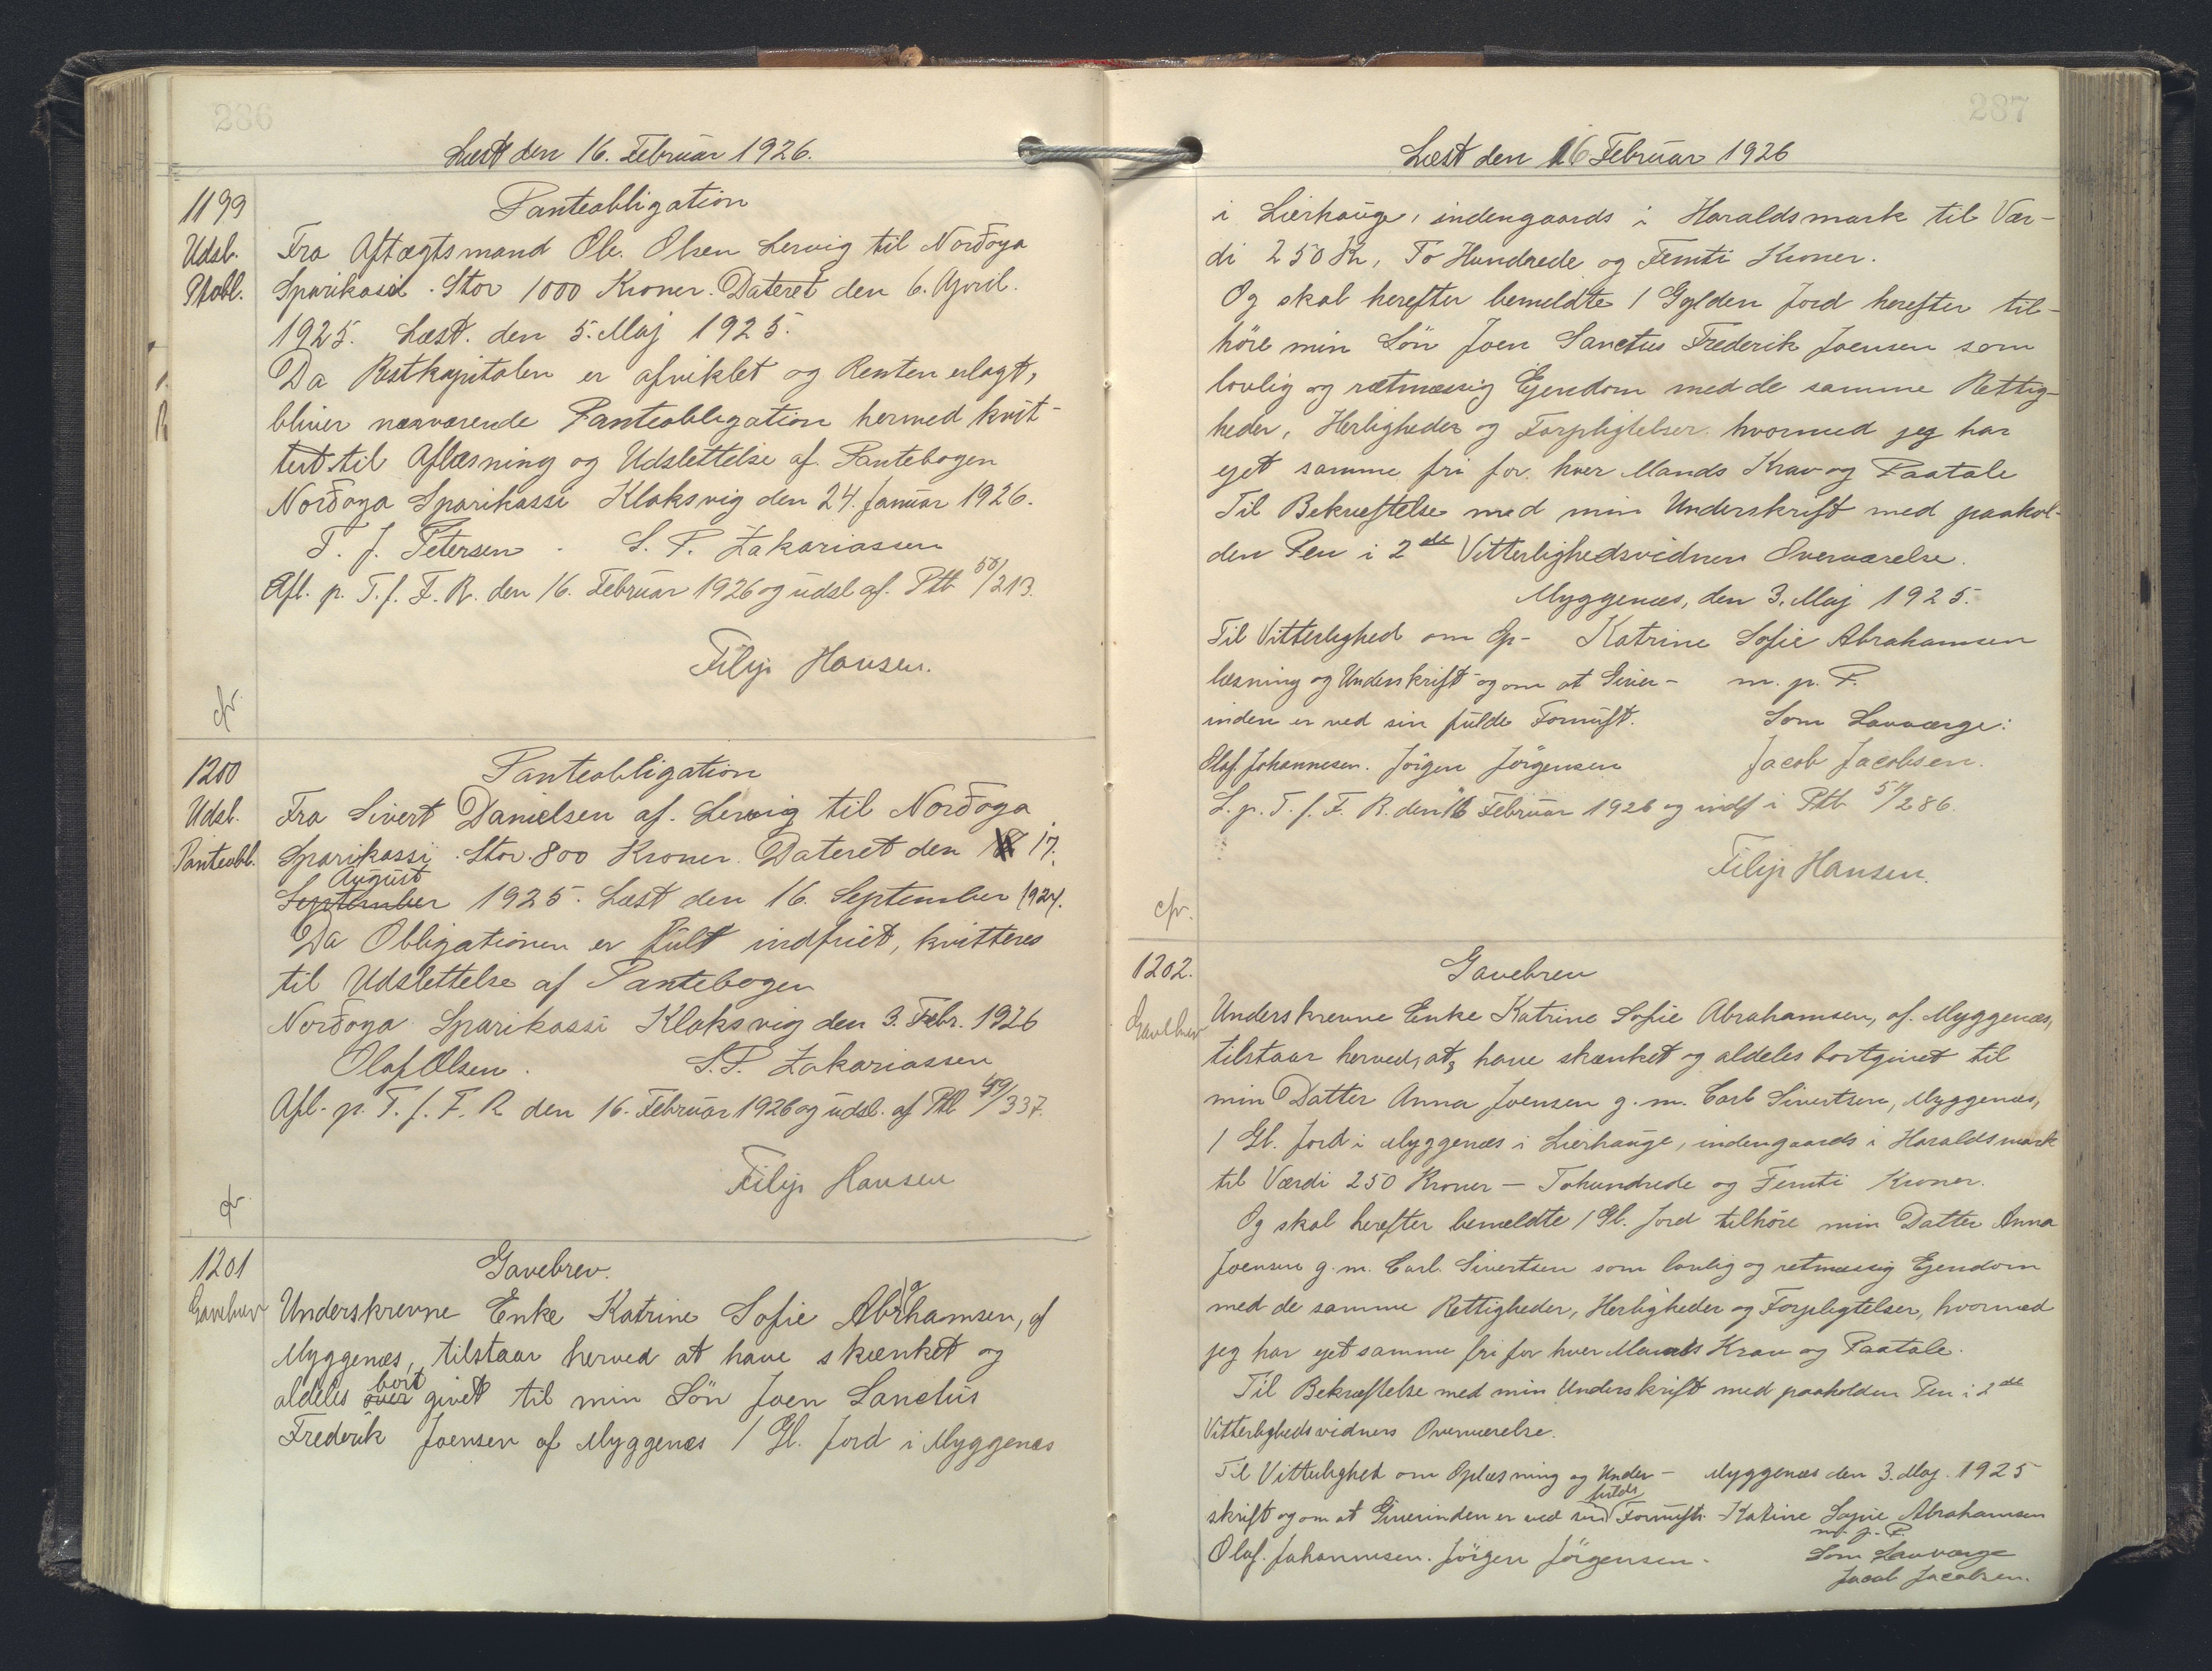 286
Læst den 16. Februar 1926.
1199
Udsl.
Ptobl.
Panteobligation
Fra Aftægtsmand Ole Olsen Lervig til Norðoya
Sparikassi. Stor 1000 Kroner. Dateret den 6. April.
1925. Læst. den 5. Maj 1925.
Da Restkapitalen er afviklet og Renten erlagt,
bliver nærværende Panteobligation hermed kvit-
tert til Aflæsning og Udslettelse af Pantebogen
Norðoya Sparikassi Klaksvig den 24. Januar 1926.
T. J. Petersen. S. P. Zakariassen
Afl. p. T. f. F. R. den 16. Februar 1926 og udsl af. Ptb 50/213.
Filip Hansen.
cfr.
1200
Udsl.
Panteobl.
Panteobligation
Fra Sivert Danielsen af. Lervig til Norðoya
Sparikassi. Stor. 800 Kroner. Dateret den 17.
August
September 1925. Læst den 16. September 1924.
Da Obligationen er fult indfriet, kvitteres
til Udslettelse af Pantebogen
Norðoya Sparikassi Klaksvig den 3. Febr. 1926
Olaf Olsen. S. P. Zakariassen
Afl. p. T. f. F. R den 16. Februar 1926 og udsl. af Ptb 49/337.
Filip Hansen
cfr.
1201
Gavebrev
Gavebrev.
Underskrevne Enke Katrine Sofie Abrahamsen, af
Myggenæs, tilstaar herved at have skænket og
aldeles over bort givet til min Søn Joen Sanctus
Frederik Joensen af Myggenæs 1 Gl. Jord i Myggenæs
287
Læst den 16 Februar 1926
i Lierhauge, indengaards i Haraldsmark til Vær-
di 250 Kr, To Hundrede og Femti Kroner.
Og skal herefter bemeldte 1 Gylden Jord herefter til-
höre min Sön Joen Sanctus Frederik Joensen som
lovlig og rætmæssig Ejendom med de samme Rettig-
heder, Herligheder og Forpligtelser. hvormed jeg har
ejet samme fri for. hver Mands Krav og Paatale
Til Bekræftelse med min Underskrift med paahol-
den Pen i 2de Vitterlighedsvidners Overværelse.
Myggenæs, den 3. Maj 1925.
Til Vitterlighed om Op- Katrine Sofie Abrahamsen
læsning og Underskrift og om at Giver- m. p. P.
inden er ved sin fulde Fornuft. Som Lavværge:
Olaf. Johannesen. Jörgen Jörgensen Jacob Jacobsen.
L. p. T. f. F. R. den 16 Februar 1926 og indf i Ptb 51/286.
Filip Hansen.
cfr.
1202.
Gavebrev
Gavebrev
Underskrevne Enke Katrine Sofie Abrahamsen, af. Myggenæs,
tilstaar herved, at have skænket og aldeles bortgivet til
min Datter Anna Joensen g. m. Carl Sivertsen, Myggenæs,
1 Gl. Jord i Myggenæs i Lierhauge, indengaards i Haraldsmark
til Værdi 250 Kroner — Tohundrede og Femti Kroner.
Og skal herefter bemeldte 1 Gl. Jord tilhöre min Datter Anna
Joensen g. m. Carl. Sivertsen som lovlig og retmæssig Ejendom
med de samme Rettigheder, Herligheder og Forpligtelser, hvormed
jeg har ejet samme fri for hver Mands Krav og Paatale.
Til Bekræftelse med min Underskrift med paaholden Pen i 2de
Vitterlighedsvidners Overværelse.
Til Vitterlighed om Oplæsning og Under- Myggenæs den 3. Maj. 1925
skrift og om at Giverinden er ved sin fulde Fornuft. Katrine Sofie Abrahamsen
m. p. P.
Olaf. Johannesen. Jörgen Jörgensen. Som Lavværge
Jacob Jacobsen.